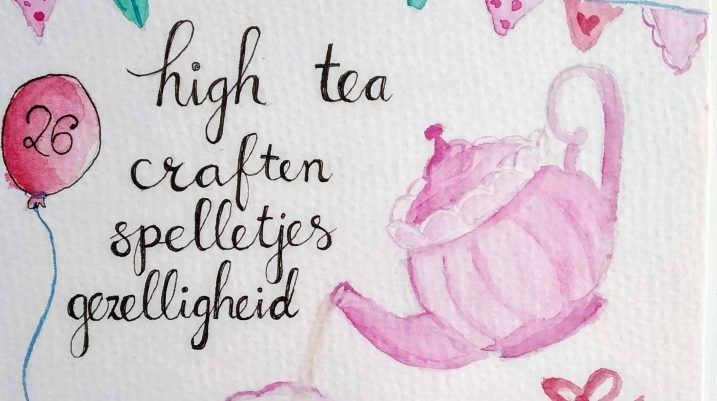 high tea
26
craften
spelletjes
gezelligheid